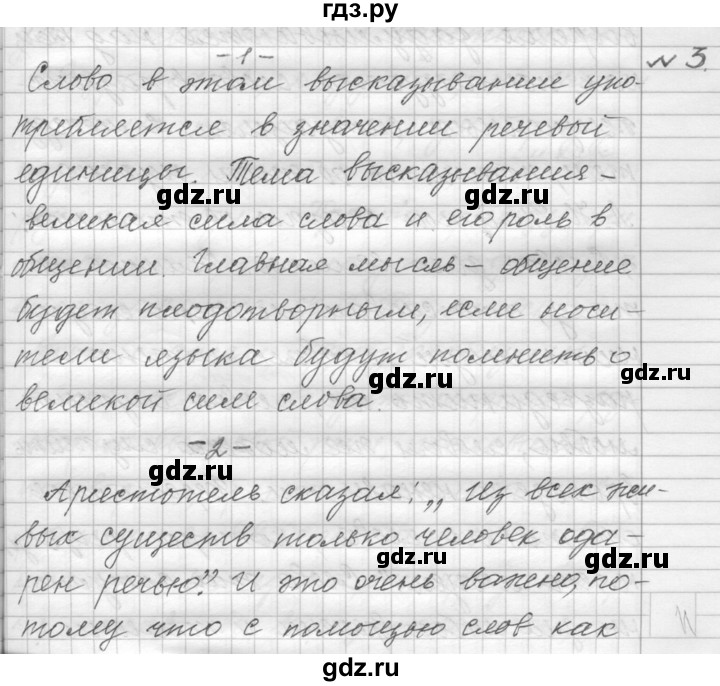 гдз.ру
-1-
№ 3.
Слово в этом высказывании упо-
требляется в значении речевой
единицы. Тема высказывания -
gdz.ru
gdz.ru
великая сила слова и его роль в
общении. Главная мысль - общение
gdz.ru
gdz.ru
будет плодотворным, если носи-
тели языка будут помнить о
gdz.ru
великой силе слова.
-2-
gdz.ru
Аристотель сказал: „Из всех жи-
вых существ только человек ода-
gdz.ru
gdz.ru
рен речью.” И это очень важно, по-
тому что с помощью слов как
gdz.ru